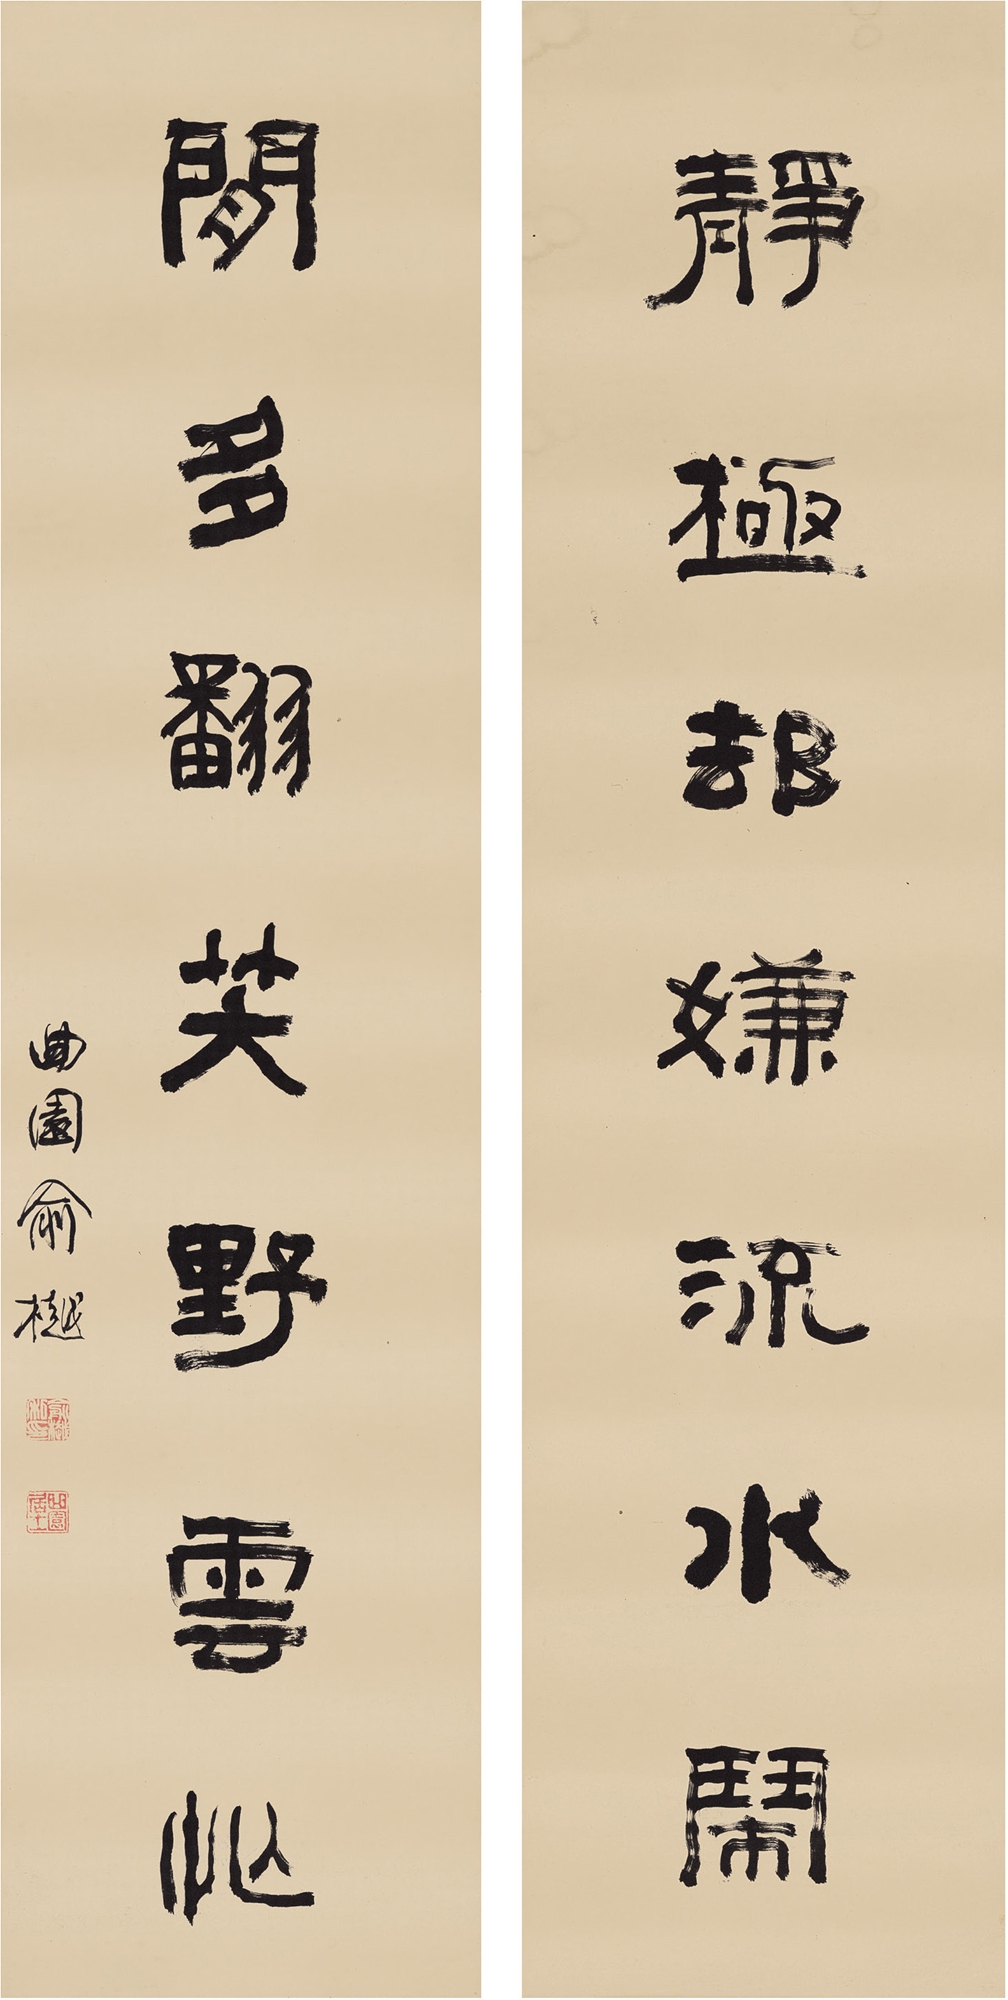 靜極却嫌流水鬧
閒多翻笑野雲忙
曲園俞樾
俞樾私印
曲園居士